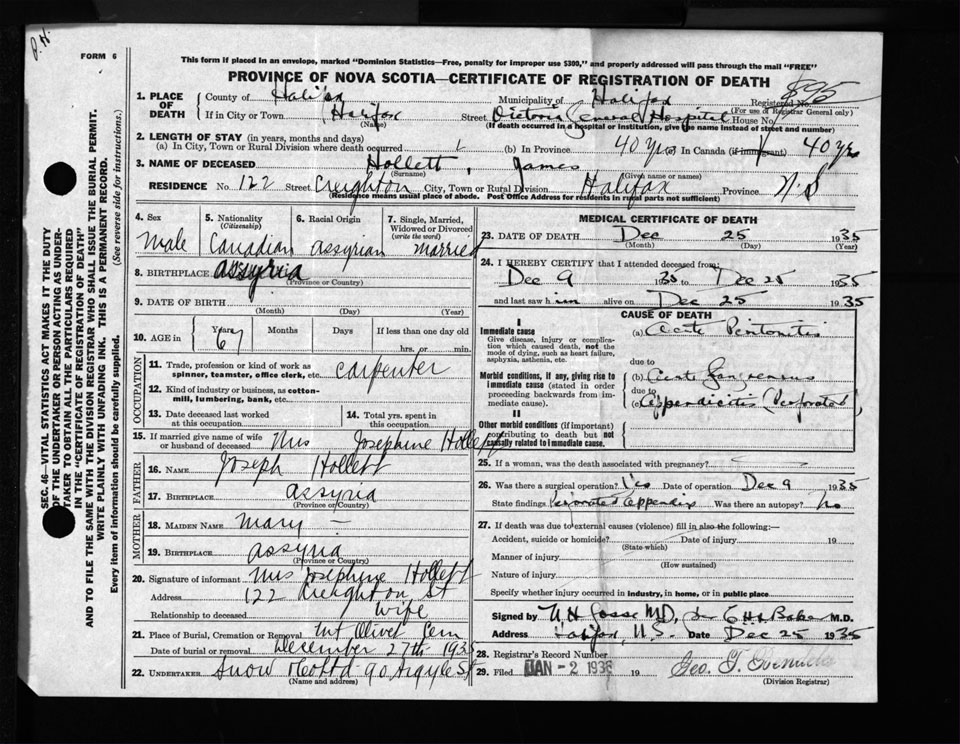 P.H.
FORM 6
This form if placed in an envelope, marked "Dominion Statistics—Free, penalty for improper use $300," and properly addressed will pass through the mail "FREE"
PROVINCE OF NOVA SCOTIA—CERTIFICATE OF REGISTRATION OF DEATH
SEC. 46—VITAL STATISTICS ACT MAKES IT THE DUTY OF THE UNDERTAKER OR PERSON ACTING AS UNDERTAKER TO OBTAIN ALL THE PARTICULARS REQUIRED IN THE "CERTIFICATE OF REGISTRATION OF DEATH"
AND TO FILE THE SAME WITH THE DIVISION REGISTRAR WHO SHALL ISSUE THE BURIAL PERMIT.
WRITE PLAINLY WITH UNFADING INK. THIS IS A PERMANENT RECORD.
Every item of information should be carefully supplied. (See reverse side for instructions.)
1. PLACE OF DEATH County of Halifax Municipality of Halifax Registered No. 895
(For use of Registrar General only)
If in City or Town Halifax Street Victoria General Hospital House No.
(Name) (If death occurred in a hospital or institution, give the name instead of street and number)
2. LENGTH OF STAY (in years, months and days)
(a) In City, Town or Rural Division where death occurred (b) in Province 40 yrs (c) In Canada (if immigrant) 40 yrs
3. NAME OF DECEASED Hollett, James
(Surname) (Given name or names)
RESIDENCE No. 122 Street Creighton City, Town or Rural Division Halifax Province N.S
(Residence means usual place of abode. Post Office Address for residents in rural parts not sufficient)
4. Sex Male
5. Nationality (Citizenship) Canadian
6. Racial Origin Assyrian
7. Single, Married, Widowed or Divorced (write the word) Married
8. BIRTHPLACE Assyria
(Province or Country)
9. DATE OF BIRTH
(Month) (Day) (Year)
10. AGE in Years 67 Months Days If less than one day old
hrs. or min.
OCCUPATION
11. Trade, profession or kind of work as spinner, teamster, office clerk, etc. Carpenter
12. Kind of industry or business, as cotton-mill, lumbering, bank, etc.
13. Date deceased last worked at this occupation
14. Total yrs. spent in this occupation
15. If married give name of wife or husband of deceased Mrs Josephine Hollett
FATHER
16. NAME Joseph Hollett
17. BIRTHPLACE Assyria
(Province or Country)
MOTHER
18. MAIDEN NAME Mary —
19. BIRTHPLACE Assyria
(Province or Country)
20. Signature of informant Mrs Josephine Hollett
Address 122 Creighton St
Relationship to deceased wife
21. Place of Burial, Cremation or Removal Mt Olivet Cem
Date of burial or removal December 27th 1935
22. UNDERTAKER Snow & Co Ltd 90 Argyle St
(Name and address)
MEDICAL CERTIFICATE OF DEATH
23. DATE OF DEATH Dec 25 1935
(Month) (Day) (Year)
24. I HEREBY CERTIFY that I attended deceased from:
Dec 9 1935 to Dec 25 1935
and last saw him alive on Dec 25 1935
CAUSE OF DEATH
I
Immediate cause
Give disease, injury or complication which caused death, not the mode of dying, such as heart failure, asphyxia, asthenia, etc.
(a) Acute Peritonitis
due to
Morbid conditions, if any, giving rise to immediate cause (stated in order proceeding backwards from immediate cause).
(b) Acute Gangrenous
due to
(c) Appendicitis (Perforated)
II
Other morbid conditions (if important) contributing to death but not causally related to immediate cause.
25. If a woman, was the death associated with pregnancy? —
26. Was there a surgical operation? Yes Date of operation Dec 9 1935
State findings Perforated Appendix Was there an autopsy? No
27. If death was due to external causes (violence) fill in also the following:—
Accident, suicide or homicide? Date of injury 19
(State which)
Manner of injury
(How sustained)
Nature of injury
Specify whether injury occurred in industry, in home, or in public place
Signed by M.D. M.D.
Address Halifax, N.S. Date Dec 25 1935
28. Registrar's Record Number
29. Filed JAN -2 1936 19 Geo. T.
(Division Registrar)